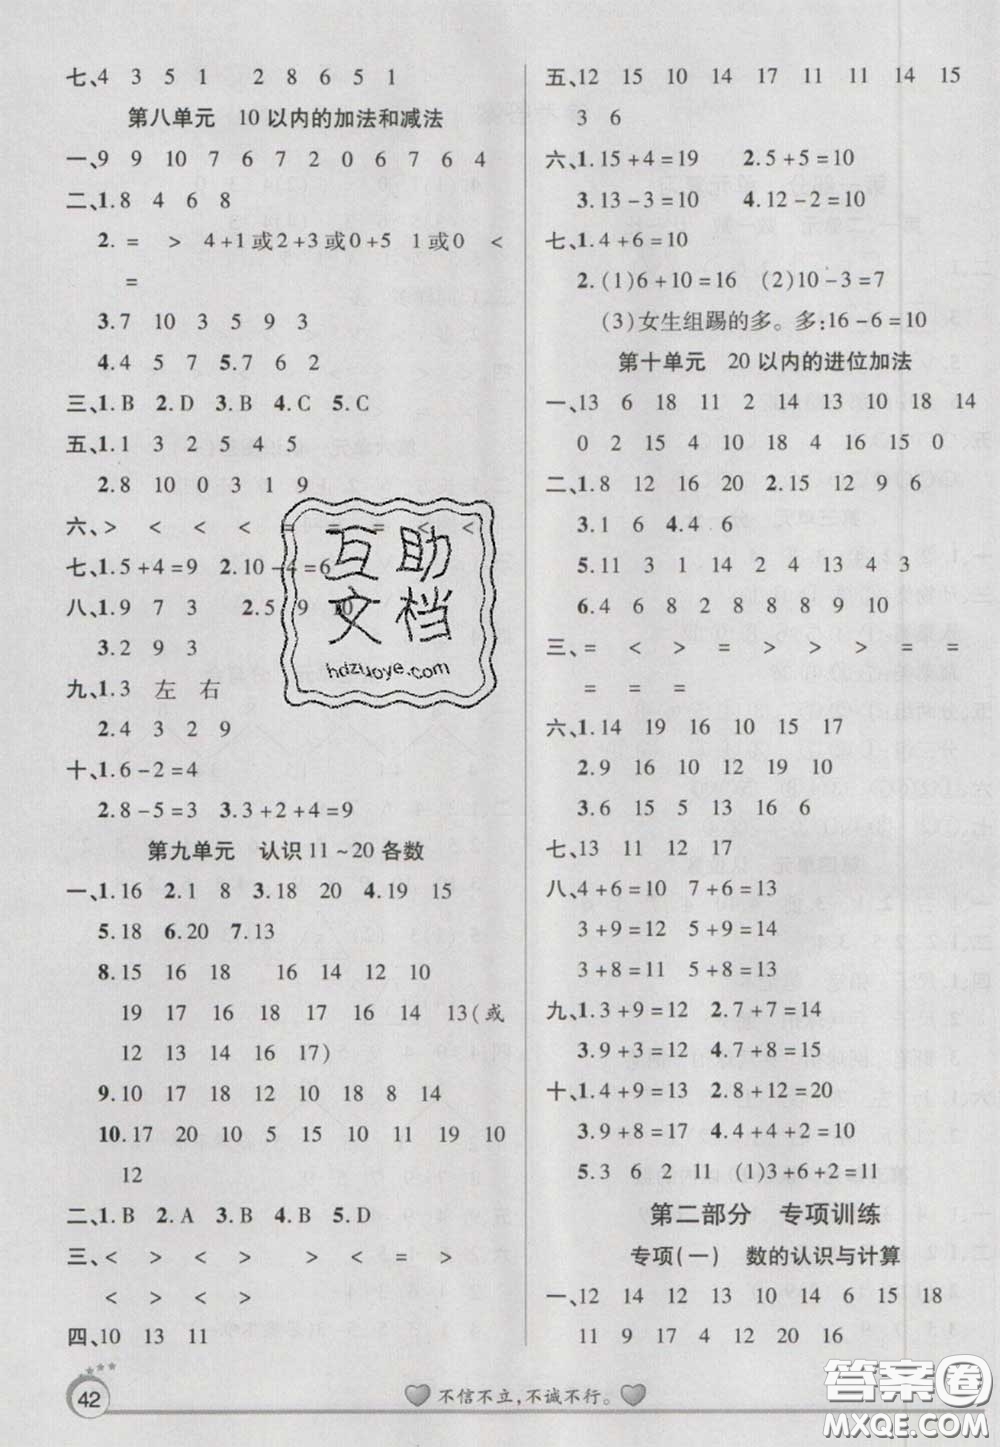 七、4 3 5 1 2 8 6 5 1
第八单元 10以内的加法和减法
一、9 9 10 7 6 7 2 0 6 7 6 4
二、1.8 4 6 8
2. = > 4+1或2+3或0+5 1或0 <
=
3.7 10 3 5 9 3
4.4 5 5.7 6 2
三、1.B 2.D 3.B 4.C 5.C
五、1.1 3 2 5 4 5
2.8 10 0 3 1 9
六、> < < < = = = < <
七、1.5+4=9 2.10-4=6
八、1.9 7 3 2.5 9 10
3.2 9 3
九、1.3 左 右
2.4 3 2 9
十、1.6-2=4
2.8-5=3 3.3+2+4=9
第九单元 认识11~20各数
一、1.16 2.1 8 3.18 20 4.19 15
5.18 6.20 7.13
8.15 16 18 16 14 12 10
19 17 16 18 17 16 14 13(或
12 13 14 16 17)
9.10 17 18 12 10 18 14
10.17 20 10 5 15 10 11 19 10
12
二、1.B 2.A 3.B 4.B 5.D
三、< > < > > < = >
< > < >
四、10 13 11
五、12 15 10 14 17 11 11 14 15
3 6
六、1.15+4=19 2.5+5=10
3.13-3=10 4.12-2=10
七、1.4+6=10
2.(1)6+10=16 (2)10-3=7
(3)女生组踢的多。多:16-6=10
第十单元 20以内的进位加法
一、13 6 18 11 2 14 13 10 18 14
0 2 15 4 10 18 4 16 15 0
二、1.8 12 16 20 2.15 12 9 6
3.1 6 4.4 6
5.11 3 8 2 4 13 4 3
6.4 6 8 2 8 8 8 9 10
三、= < > = > > < = =
= = = =
六、1.14 19 16 10 15 17
2.9 16 10 10 12 14
3.6 15 15 13 16 6
七、13 11 12 17
八、4+6=10 7+6=13
3+9=12 5+9=14
3+8=11 5+8=13
九、1.3+9=12 2.7+7=14
3.9+3=12 4.7+8=15
十、1.4+9=13 2.8+12=20
3.9+8=17 4.4+4+2=10
5.3 6 2 11 (1)3+6+2=11
第二部分 专项训练
专项(一) 数的认识与计算
一、12 14 12 13 10 14 6 15 18
11 9 17 4 12 20 16
42
不信不立,不诚不行。
互助
文档
hdzuoye.com
答案圈
MXQE.COM